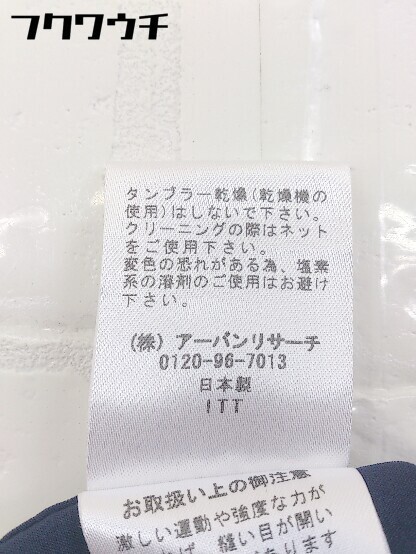 フクワウチ
タンブラー乾燥(乾燥機の
使用)はしないで下さい。
クリーニングの際はネット
をご使用下さい。
変色の恐れがある為、塩素
系の溶剤のご使用はお避け
下さい。
(株) アーバンリサーチ
0120-96-7013
日本製
ITT
お取扱い上の御注意
激しい運動や強度な力が
ば、縫い目が開い
あります